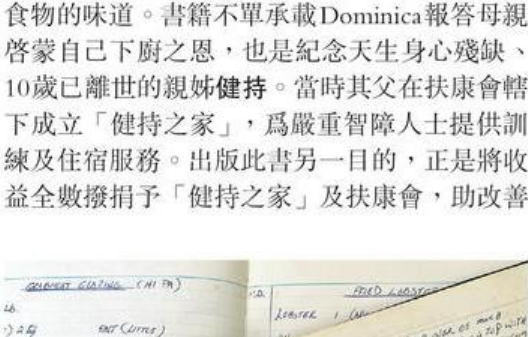 食物的味道。書籍不單承載Dominica報答母親
啓蒙自己下廚之恩，也是紀念天生身心殘缺、
10歲已離世的親姊健持。當時其父在扶康會轄
下成立「健持之家」，爲嚴重智障人士提供訓
練及住宿服務。出版此書另一目的，正是將收
益全數撥捐予「健持之家」及扶康會，助改善
GLAZING
FRIED LOBSTER
LOBSTER 1